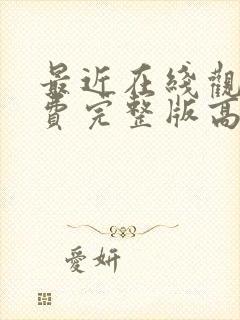 最近在线觀
费完整版高
愛妍